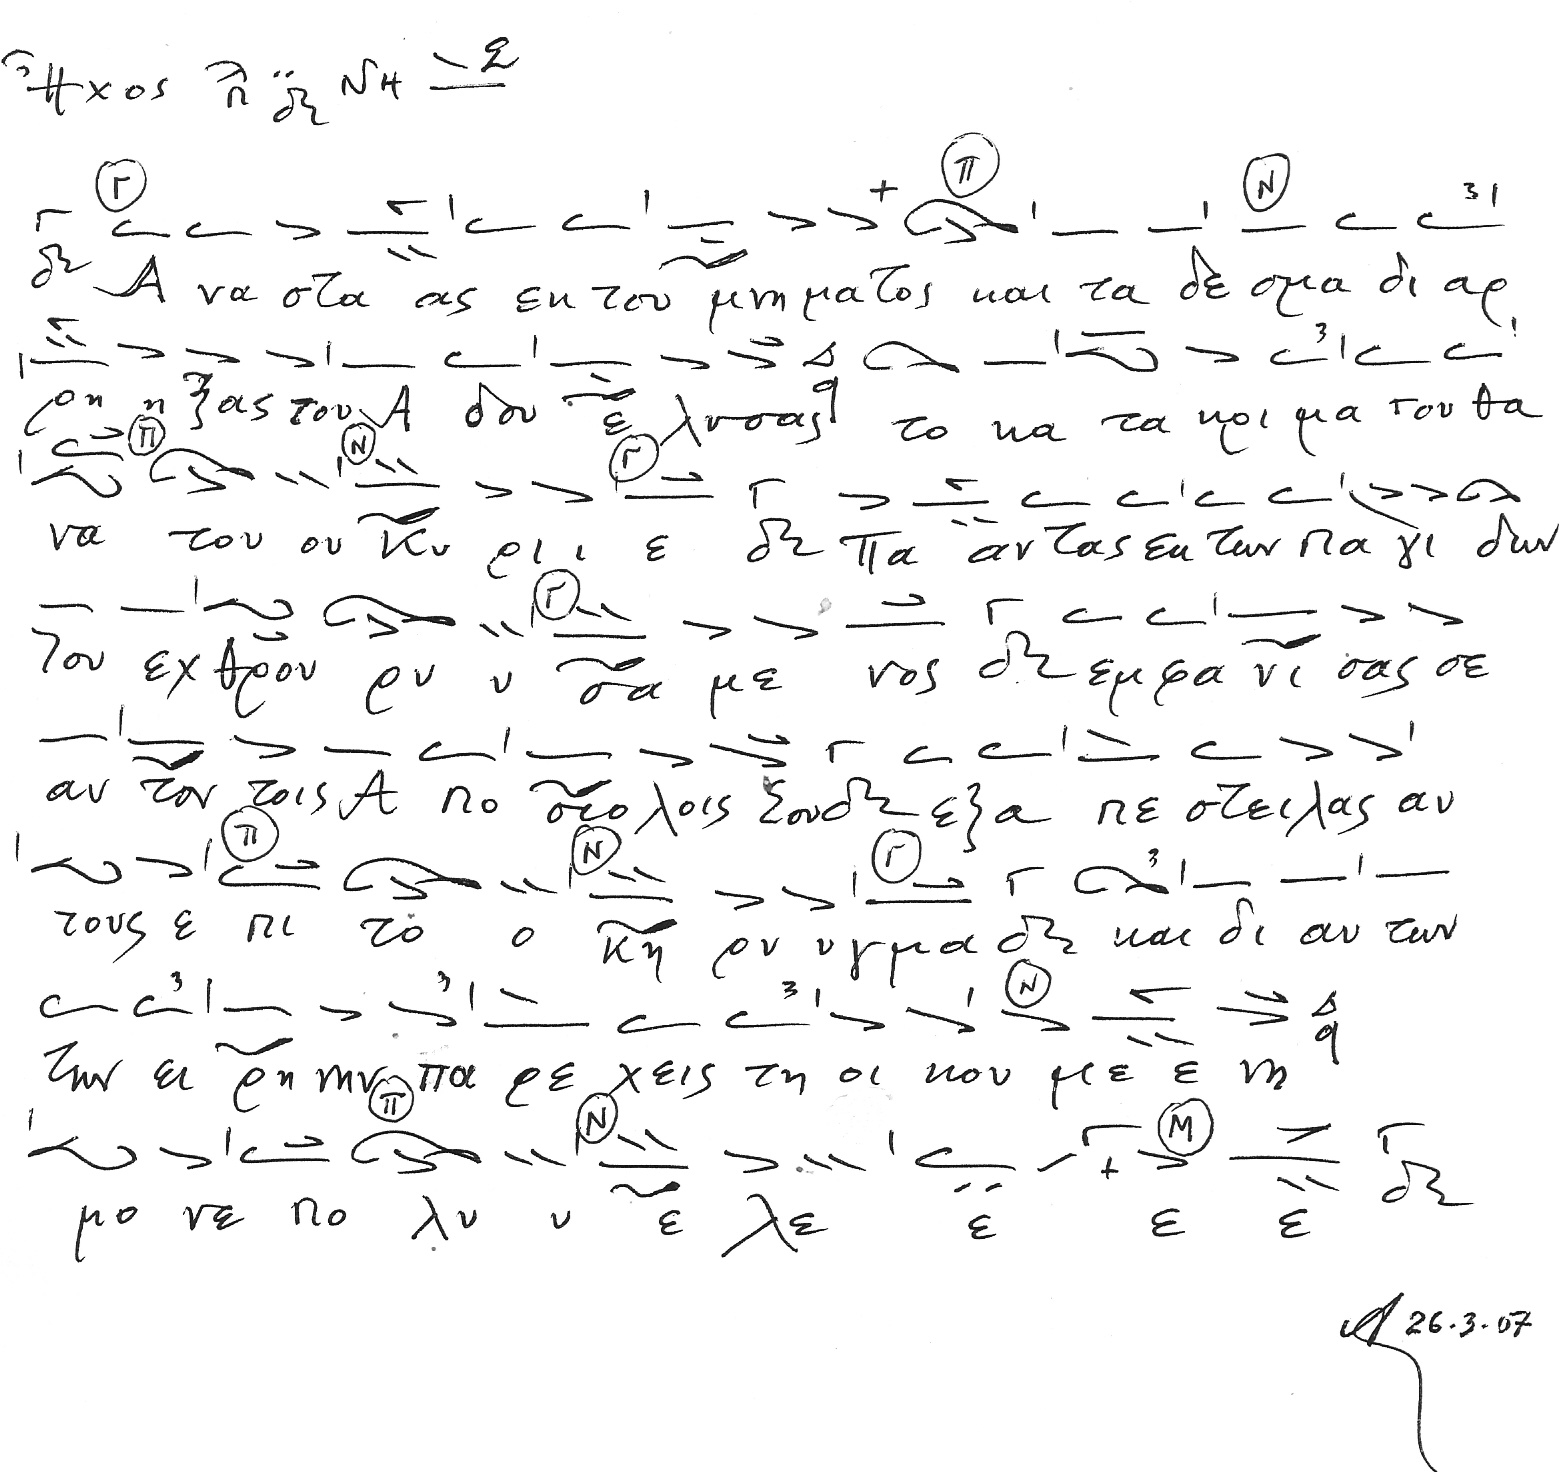 Ήχος λ π δ Νη
Γ Π Ν
Α να στα ας εκ του μνηματος και τα δε σμα δι αρ
ρη η ξας του Α δου ε λυσας το κα τα κρι μα του θα
Π Ν Γ
να του ου Κυ ρι ι ε Πα αντας εκ των πα γι δων
Γ
του εχθρου ρυ υ σα με νος εμφα νι σας σε
αυ τον τοις Α πο στο λοις σου εξα πε στειλας αυ
Π Ν Γ
τους ε πι το ο κη ρυ υγμα και δι αυ των
Ν
την ει ρη νην πα ρε χεις τη οι κου με ε νη
Π Ν Μ
μο νε πο λυ υ ε λε ε ε ε
26.3.07